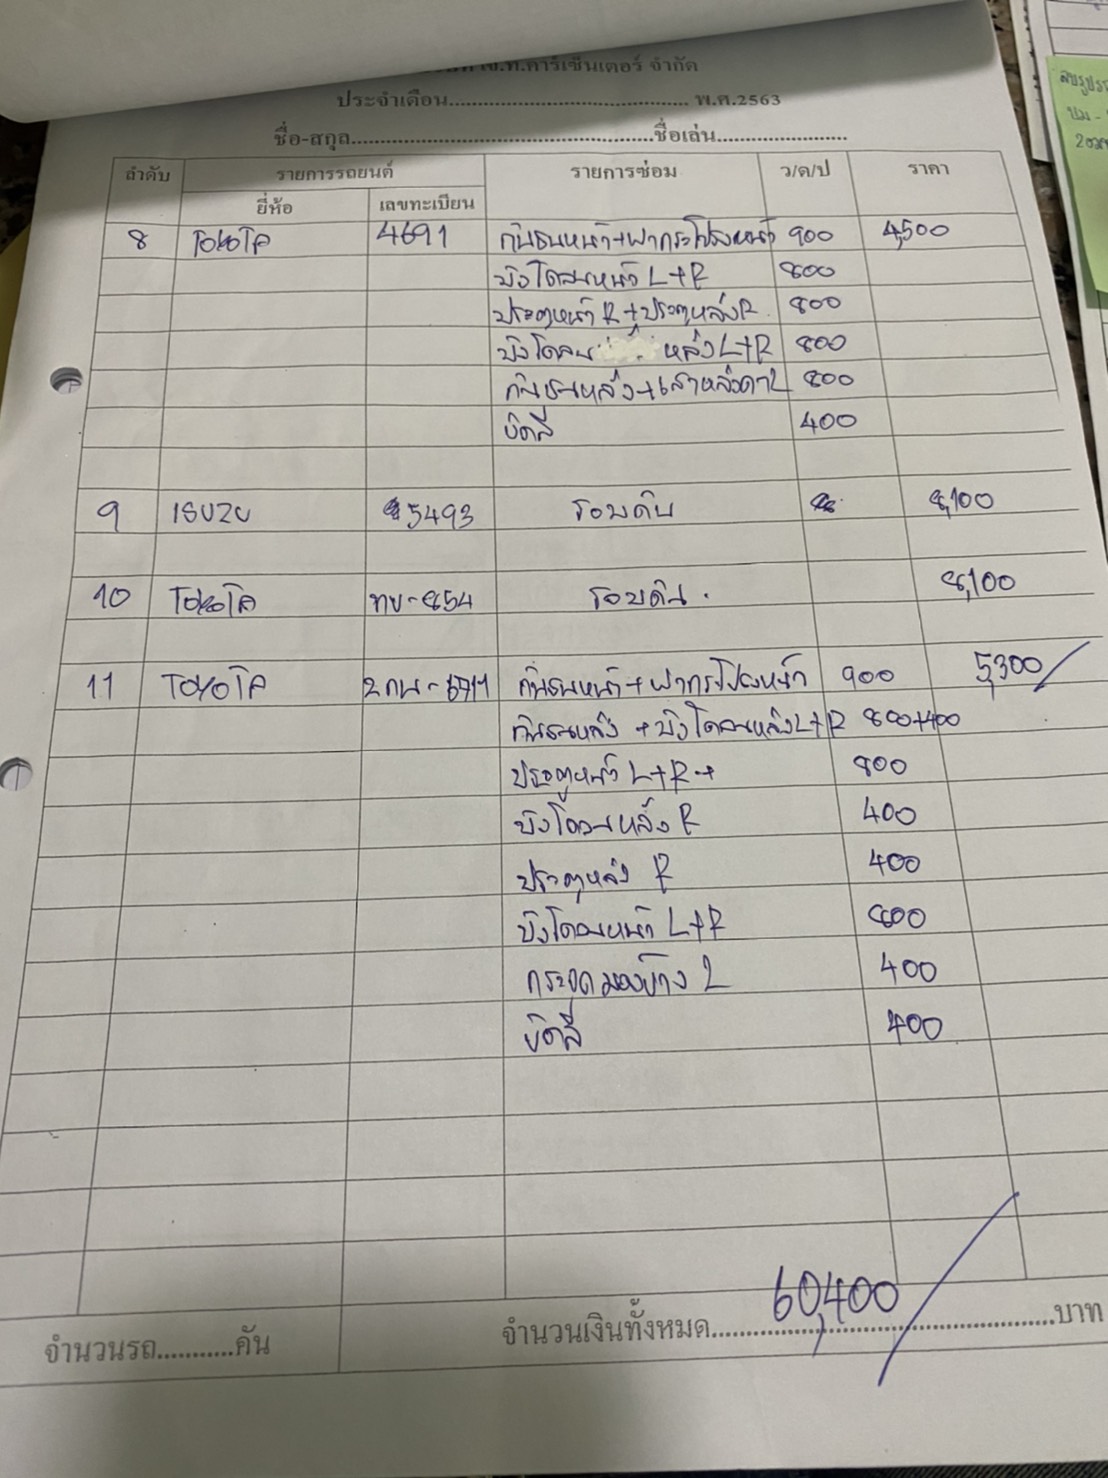 .ท.คาร์เซ็นเตอร์ จำกัด
ประจำเดือน........................................ พ.ศ.2563
ชื่อ-สกุล..................................................ชื่อเล่น......................
ลำดับ รายการรถยนต์ รายการซ่อม ว/ด/ป ราคา
ยี่ห้อ เลขทะเบียน
8 TOYOTA 4691 กันชนหน้า+ฝากระโปรงหน้า 900 4,500
บังโคลนหน้า L+R 800
ประตูหน้า R+ประตูหลังR 800
บังโคลน หลัง L+R 800
กันชนหลัง+เสาหลังคาL 800
ขัดสี 400
9 ISUZU 5493 รอบคัน 8,100
10 TOYOTA ทบ-854 รอบคัน. 8,100
11 TOYOTA 2กน- กันชนหน้า+ฝากระโปรงหน้า 900 5,300
กันชนหลัง+บังโคลนหลังL+R 800+400
ประตูหน้า L+R+ 800
บังโคลนหลัง R 400
ประตูหลัง R 400
บังโคลนหน้า L+R 800
กระจกมองข้าง L 400
ขัดสี 400
จำนวนรถ............คัน จำนวนเงินทั้งหมด 60,400 บาท
ลบรูปรร
2